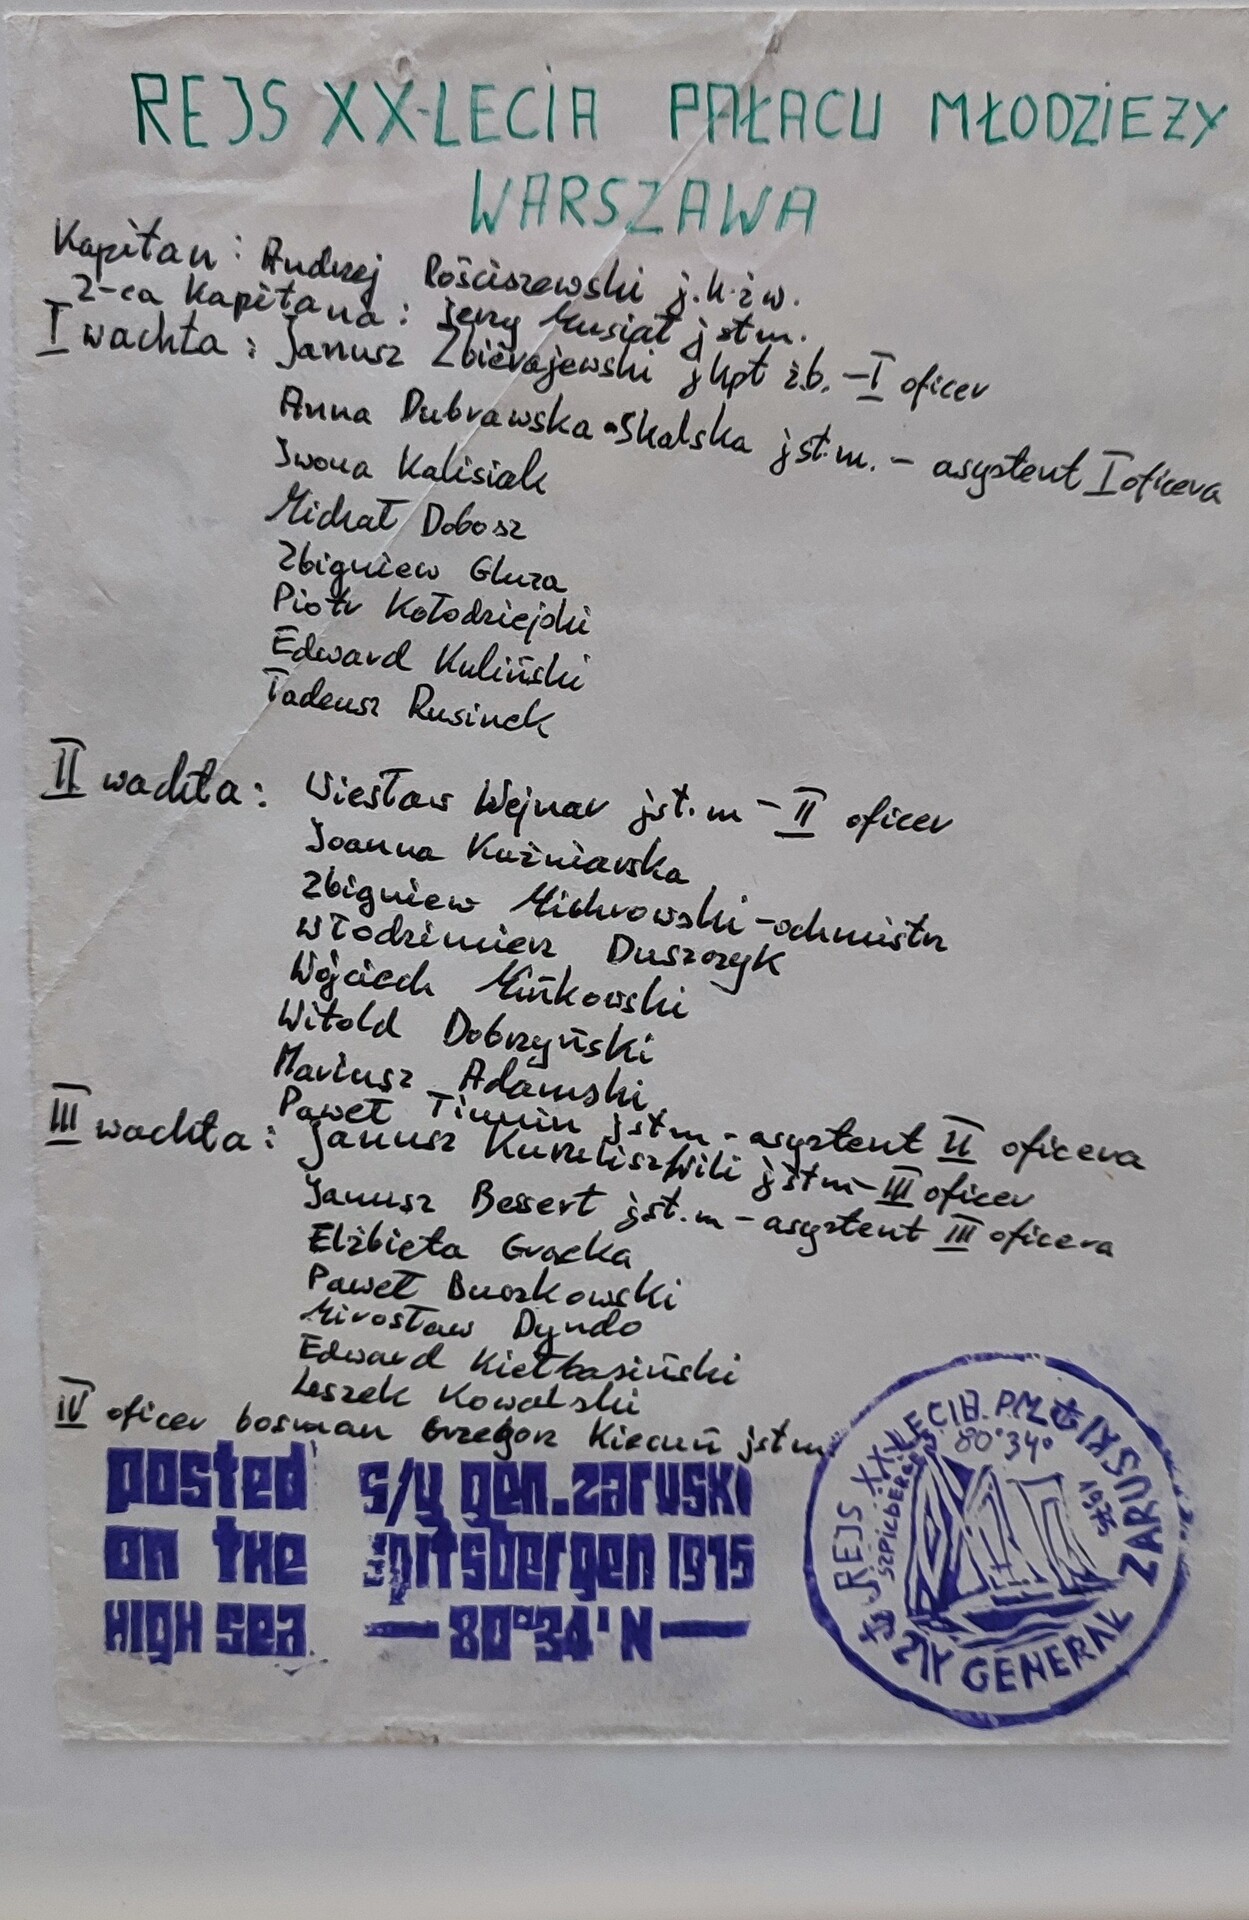 REJS XX-LECIA PAŁACU MŁODZIEZY
WARSZAWA
Kapitan: Andrzej Rościszewski j.k.ż.w.
Z-ca Kapitana: Jerzy Musiał j st.m.
I wachta: Janusz Zbierajewski j kpt ż.b. - I oficer
Anna Dubrawska-Skalska j st.m. - asystent I oficera
Iwona Kalisiak
Michał Dobosz
Zbigniew Gluza
Piotr Kołodziejski
Edward Kuliński
Tadeusz Rusinek
II wachta: Wiesław Wejnar j st.m - II oficer
Joanna Kuźniarska
Zbigniew Michrowski - ochmistrz
Włodzimierz Duszczyk
Wojciech Mińkowski
Witold Dobrzyński
Mariusz Adamski
Paweł j st m - asystent II oficera
III wachta: Janusz Kureliszwili j st m - III oficer
Janusz Bessert j st.m - asystent III oficera
Elżbieta Gracka
Paweł Buczkowski
Mirosław Dyndo
Edward Kiełbasiński
Leszek Kowalski
IV oficer bosman Grzegorz j st m
posted s/y gen. zaruski
on the spitsbergen 1975
HIGH sea — 80°34' N —
REJS XX-LECIA P.M.
80°34°
SZPICBERGEN
1975
S/Y GENERAŁ ZARUSKI